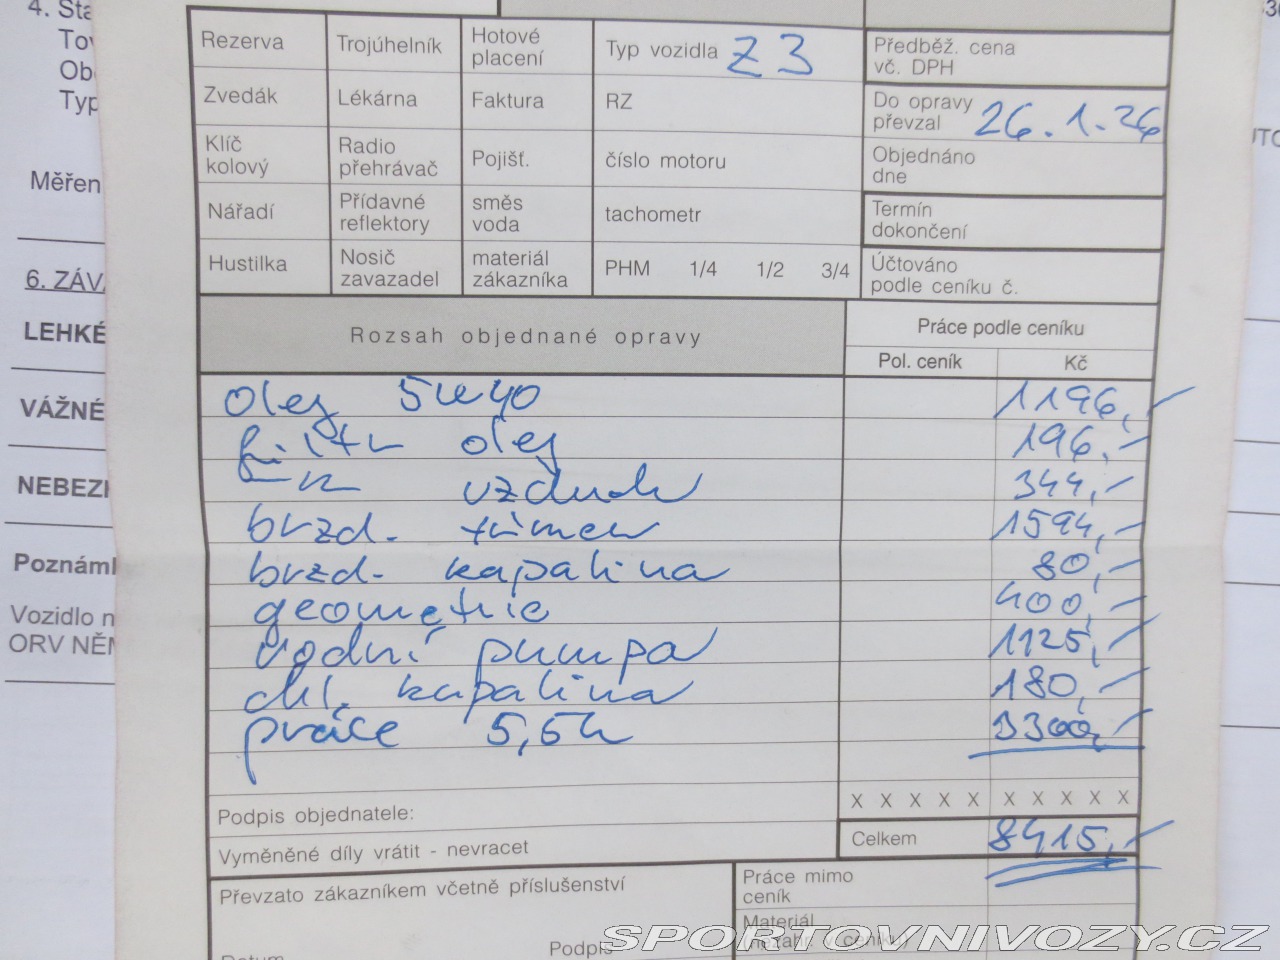 4. Sta
Tov
Obc
Typ
Měřen
6. ZÁVA
LEHKÉ
VÁŽNÉ
NEBEZP
Poznámk
Vozidlo n
ORV NĚM
Rezerva Trojúhelník Hotové placení Typ vozidla Z 3 Předběž. cena vč. DPH
Zvedák Lékárna Faktura RZ Do opravy převzal 26.1.26
Klíč kolový Radio přehrávač Pojišť. číslo motoru Objednáno dne
Nářadí Přídavné reflektory směs voda tachometr Termín dokončení
Hustilka Nosič zavazadel materiál zákazníka PHM 1/4 1/2 3/4 Účtováno podle ceníku č.
Rozsah objednané opravy Práce podle ceníku
Pol. ceník Kč
olej 5W40 1196,-
filtr olej 196,-
-"- vzduch 344,-
brzd. třmen 1594,-
brzd. kapalina 80,-
geometrie 400,-
vodní pumpa 1125,-
chl. kapalina 180,-
práce 5,5h 3300,-
Podpis objednatele: X X X X X X X X X X
Vyměněné díly vrátit - nevracet Celkem 8415,-
Převzato zákazníkem včetně příslušenství Práce mimo ceník
Materiál (nezahr. v ceníku)
Datum Podpis
SPORTOVNIVOZY.CZ